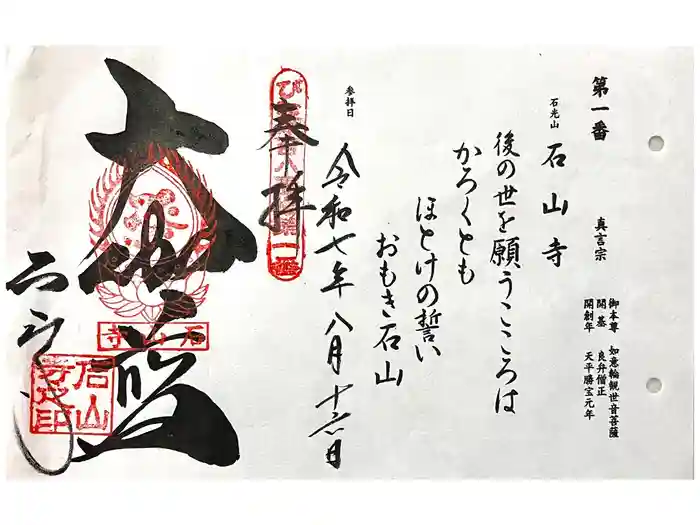 第一番
真言宗
御本尊 如意輪観世音菩薩
開基 良弁僧正
開創年 天平勝宝元年
石光山 石山寺
後の世を願うこころは
かろくとも
ほとけの誓い
おもき石山
参拝日
令和七年八月十六日
奉拝
大悲殿
石山寺
石山寺
石山寺之印